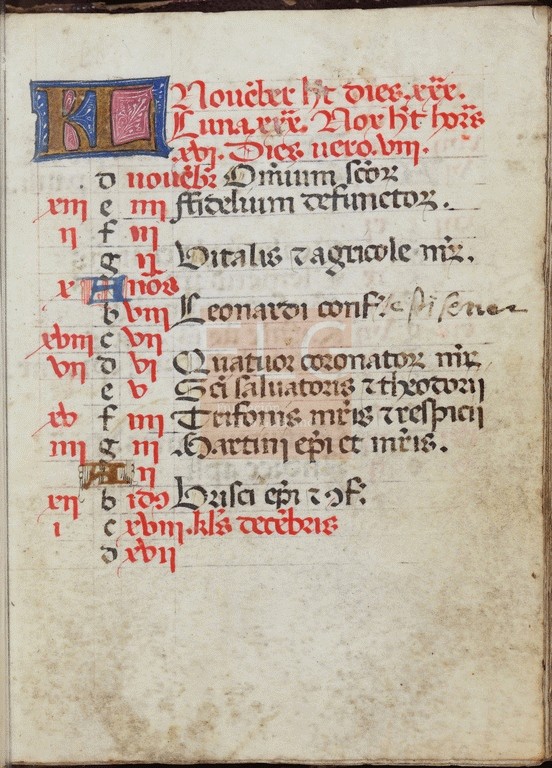 KL Nouēber ht dies .xxx.
Luna .xxx. Nox ht horas
.xvi. Dies uero .viii.
d nouēbr Omīum scōr
xiii e iiii ffidelium defunctor.
ii f iii
g ii Vitalis ⁊ agricole mr.
x A nōs
b viii Leonardi conf.
xviii c vii
vii d vi Quatuor coronator mr
e v Sci saluatoris ⁊ theodorii
xv f iiii Trifonis mris ⁊ respicii
iiii g iii Martini epi et mris.
A ii
xii b idꝰ Brisci epi ⁊ ꝯf.
i c xviii .kls decēbris
d xvii